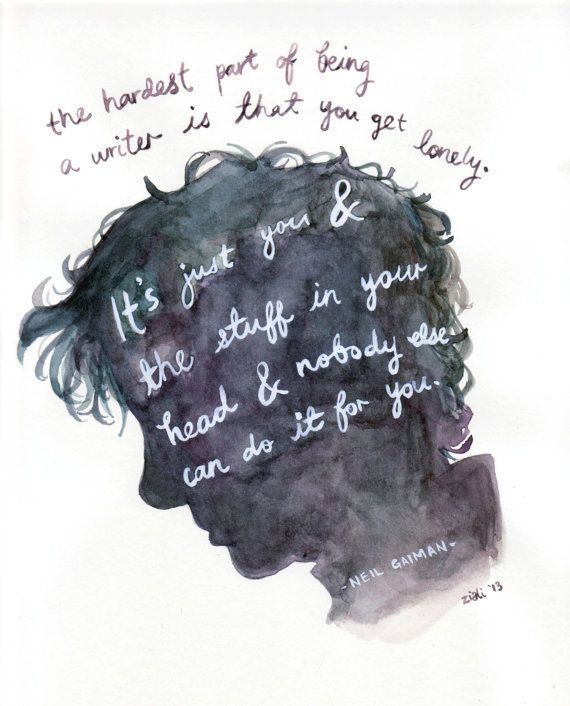 the hardest part of being
a writer is that you get lonely.
It's just you &
the stuff in your
head & nobody else
can do it for you.
-NEIL GAIMAN-
'13